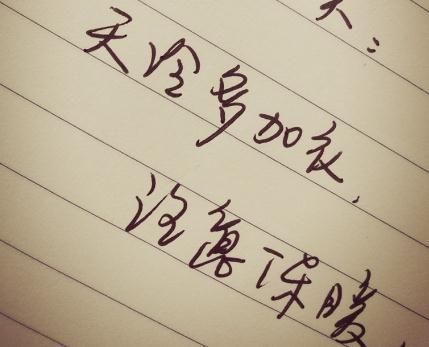 天冷多加衣,
注意保暖.